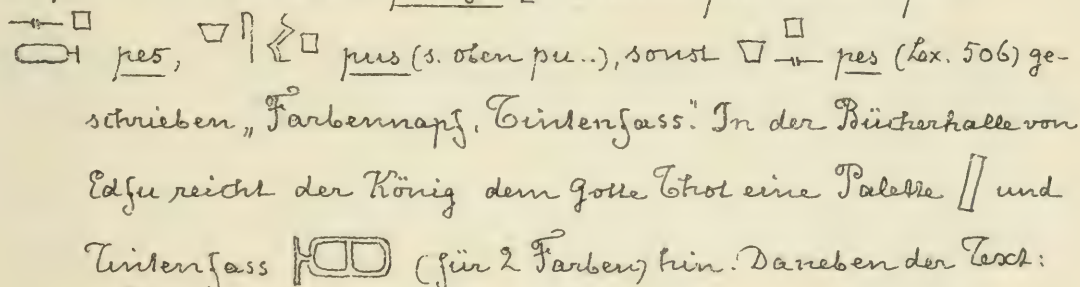 pes, pus (s. oben pu..), sonst pes (Lex. 506) ge-
schrieben „Farbennapf, Tintenfass". In der Bücherhalle von
Edfu reicht der König dem Gotte Thot eine Palette und
Tintenfass (für 2 Farben) hin. Daneben der Text: